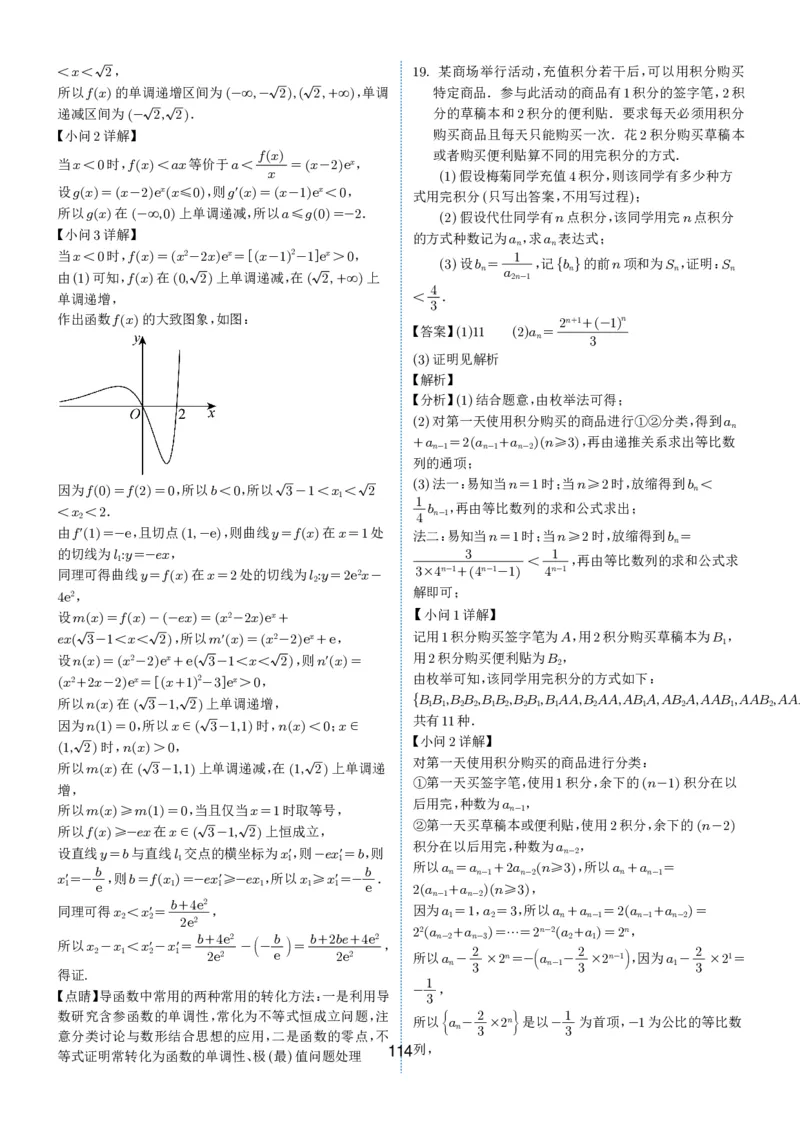 <x<√2,
所以f(x)的单调递增区间为(-∞,-√2),(√2,+∞),单调
递减区间为(-√2,√2).
【小问2详解】
当x<0时,f(x)<ax等价于a<f(x)/x=(x-2)eˣ,
设g(x)=(x-2)eˣ(x≤0),则g′(x)=(x-1)eˣ<0,
所以g(x)在(-∞,0)上单调递减,所以a≤g(0)=-2.
【小问3详解】
当x<0时,f(x)=(x²-2x)eˣ=[(x-1)²-1]eˣ>0,
由(1)可知,f(x)在(0,√2)上单调递减,在(√2,+∞)上
单调递增,
作出函数f(x)的大致图象,如图:
y
O 2 x
因为f(0)=f(2)=0,所以b<0,所以√3-1<x₁<√2
<x₂<2.
由f′(1)=-e,且切点(1,-e),则曲线y=f(x)在x=1处
的切线为l₁:y=-ex,
同理可得曲线y=f(x)在x=2处的切线为l₂:y=2e²x-
4e²,
设m(x)=f(x)-(-ex)=(x²-2x)eˣ+
ex(√3-1<x<√2),所以m′(x)=(x²-2)eˣ+e,
设n(x)=(x²-2)eˣ+e(√3-1<x<√2),则n′(x)=
(x²+2x-2)eˣ=[(x+1)²-3]eˣ>0,
所以n(x)在(√3-1,√2)上单调递增,
因为n(1)=0,所以x∈(√3-1,1)时,n(x)<0;x∈
(1,√2)时,n(x)>0,
所以m(x)在(√3-1,1)上单调递减,在(1,√2)上单调递
增,
所以m(x)≥m(1)=0,当且仅当x=1时取等号,
所以f(x)≥-ex在x∈(√3-1,√2)上恒成立,
设直线y=b与直线l₁交点的横坐标为x₁′,则-ex₁′=b,则
x₁′=-b/e,则b=f(x₁)=-ex₁′≥-ex₁,所以x₁≥x₁′=-b/e.
同理可得x₂<x₂′=(b+4e²)/(2e²),
所以x₂-x₁<x₂′-x₁′=(b+4e²)/(2e²)-(-b/e)=(b+2be+4e²)/(2e²),
得证.
【点睛】导函数中常用的两种常用的转化方法:一是利用导
数研究含参函数的单调性,常化为不等式恒成立问题,注
意分类讨论与数形结合思想的应用,二是函数的零点,不
等式证明常转化为函数的单调性、极(最)值问题处理
19. 某商场举行活动,充值积分若干后,可以用积分购买
特定商品.参与此活动的商品有1积分的签字笔,2积
分的草稿本和2积分的便利贴.要求每天必须用积分
购买商品且每天只能购买一次.花2积分购买草稿本
或者购买便利贴算不同的用完积分的方式.
(1)假设梅菊同学充值4积分,则该同学有多少种方
式用完积分(只写出答案,不用写过程);
(2)假设代仕同学有n点积分,该同学用完n点积分
的方式种数记为aₙ,求aₙ表达式;
(3)设bₙ=1/a₂ₙ₋₁,记{bₙ}的前n项和为Sₙ,证明:Sₙ
<4/3.
【答案】(1)11 (2)aₙ=(2ⁿ⁺¹+(-1)ⁿ)/3
(3)证明见解析
【解析】
【分析】(1)结合题意,由枚举法可得;
(2)对第一天使用积分购买的商品进行①②分类,得到aₙ
+aₙ₋₁=2(aₙ₋₁+aₙ₋₂)(n≥3),再由递推关系求出等比数
列的通项;
(3)法一:易知当n=1时;当n≥2时,放缩得到bₙ<
1/4 bₙ₋₁,再由等比数列的求和公式求出;
法二:易知当n=1时;当n≥2时,放缩得到bₙ=
3/(3×4ⁿ⁻¹+(4ⁿ⁻¹-1))<1/4ⁿ⁻¹,再由等比数列的求和公式求
解即可;
【小问1详解】
记用1积分购买签字笔为A,用2积分购买草稿本为B₁,
用2积分购买便利贴为B₂,
由枚举可知,该同学用完积分的方式如下:
{B₁B₁,B₂B₂,B₁B₂,B₂B₁,B₁AA,B₂AA,AB₁A,AB₂A,AAB₁,AAB₂,AA
共有11种.
【小问2详解】
对第一天使用积分购买的商品进行分类:
①第一天买签字笔,使用1积分,余下的(n-1)积分在以
后用完,种数为aₙ₋₁,
②第一天买草稿本或便利贴,使用2积分,余下的(n-2)
积分在以后用完,种数为aₙ₋₂,
所以aₙ=aₙ₋₁+2aₙ₋₂(n≥3),所以aₙ+aₙ₋₁=
2(aₙ₋₁+aₙ₋₂)(n≥3),
因为a₁=1,a₂=3,所以aₙ+aₙ₋₁=2(aₙ₋₁+aₙ₋₂)=
2²(aₙ₋₂+aₙ₋₃)=⋯=2ⁿ⁻²(a₂+a₁)=2ⁿ,
所以aₙ-2/3×2ⁿ=-(aₙ₋₁-2/3×2ⁿ⁻¹),因为a₁-2/3×2¹=
-1/3,
所以{aₙ-2/3×2ⁿ}是以-1/3为首项,-1为公比的等比数
列,
114